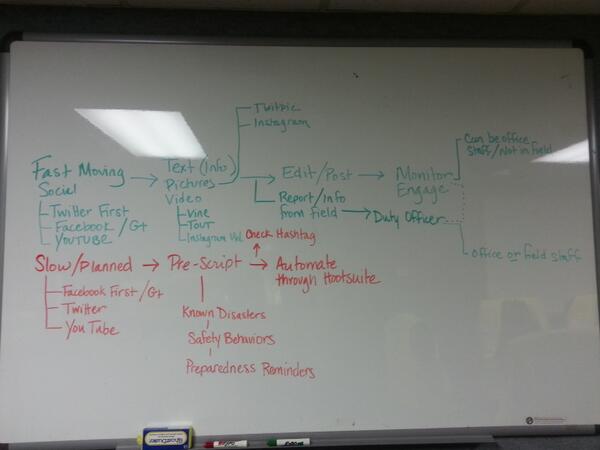 Twitpic
Instagram
Can be office
Staff/Not in field
Fast Moving
Social
Twitter First
Facebook/G+
YouTube
Text (Info)
Pictures
Video
Vine
Tout
Instagram Vid.
Edit/Post
Report/Info
from field
Monitor
Engage
Duty Officer
Office or field staff
Check Hashtag
Slow/Planned
Facebook First/G+
Twitter
You Tube
Pre-Script
Automate
through Hootsuite
Known Disasters
Safety Behaviors
Preparedness Reminders